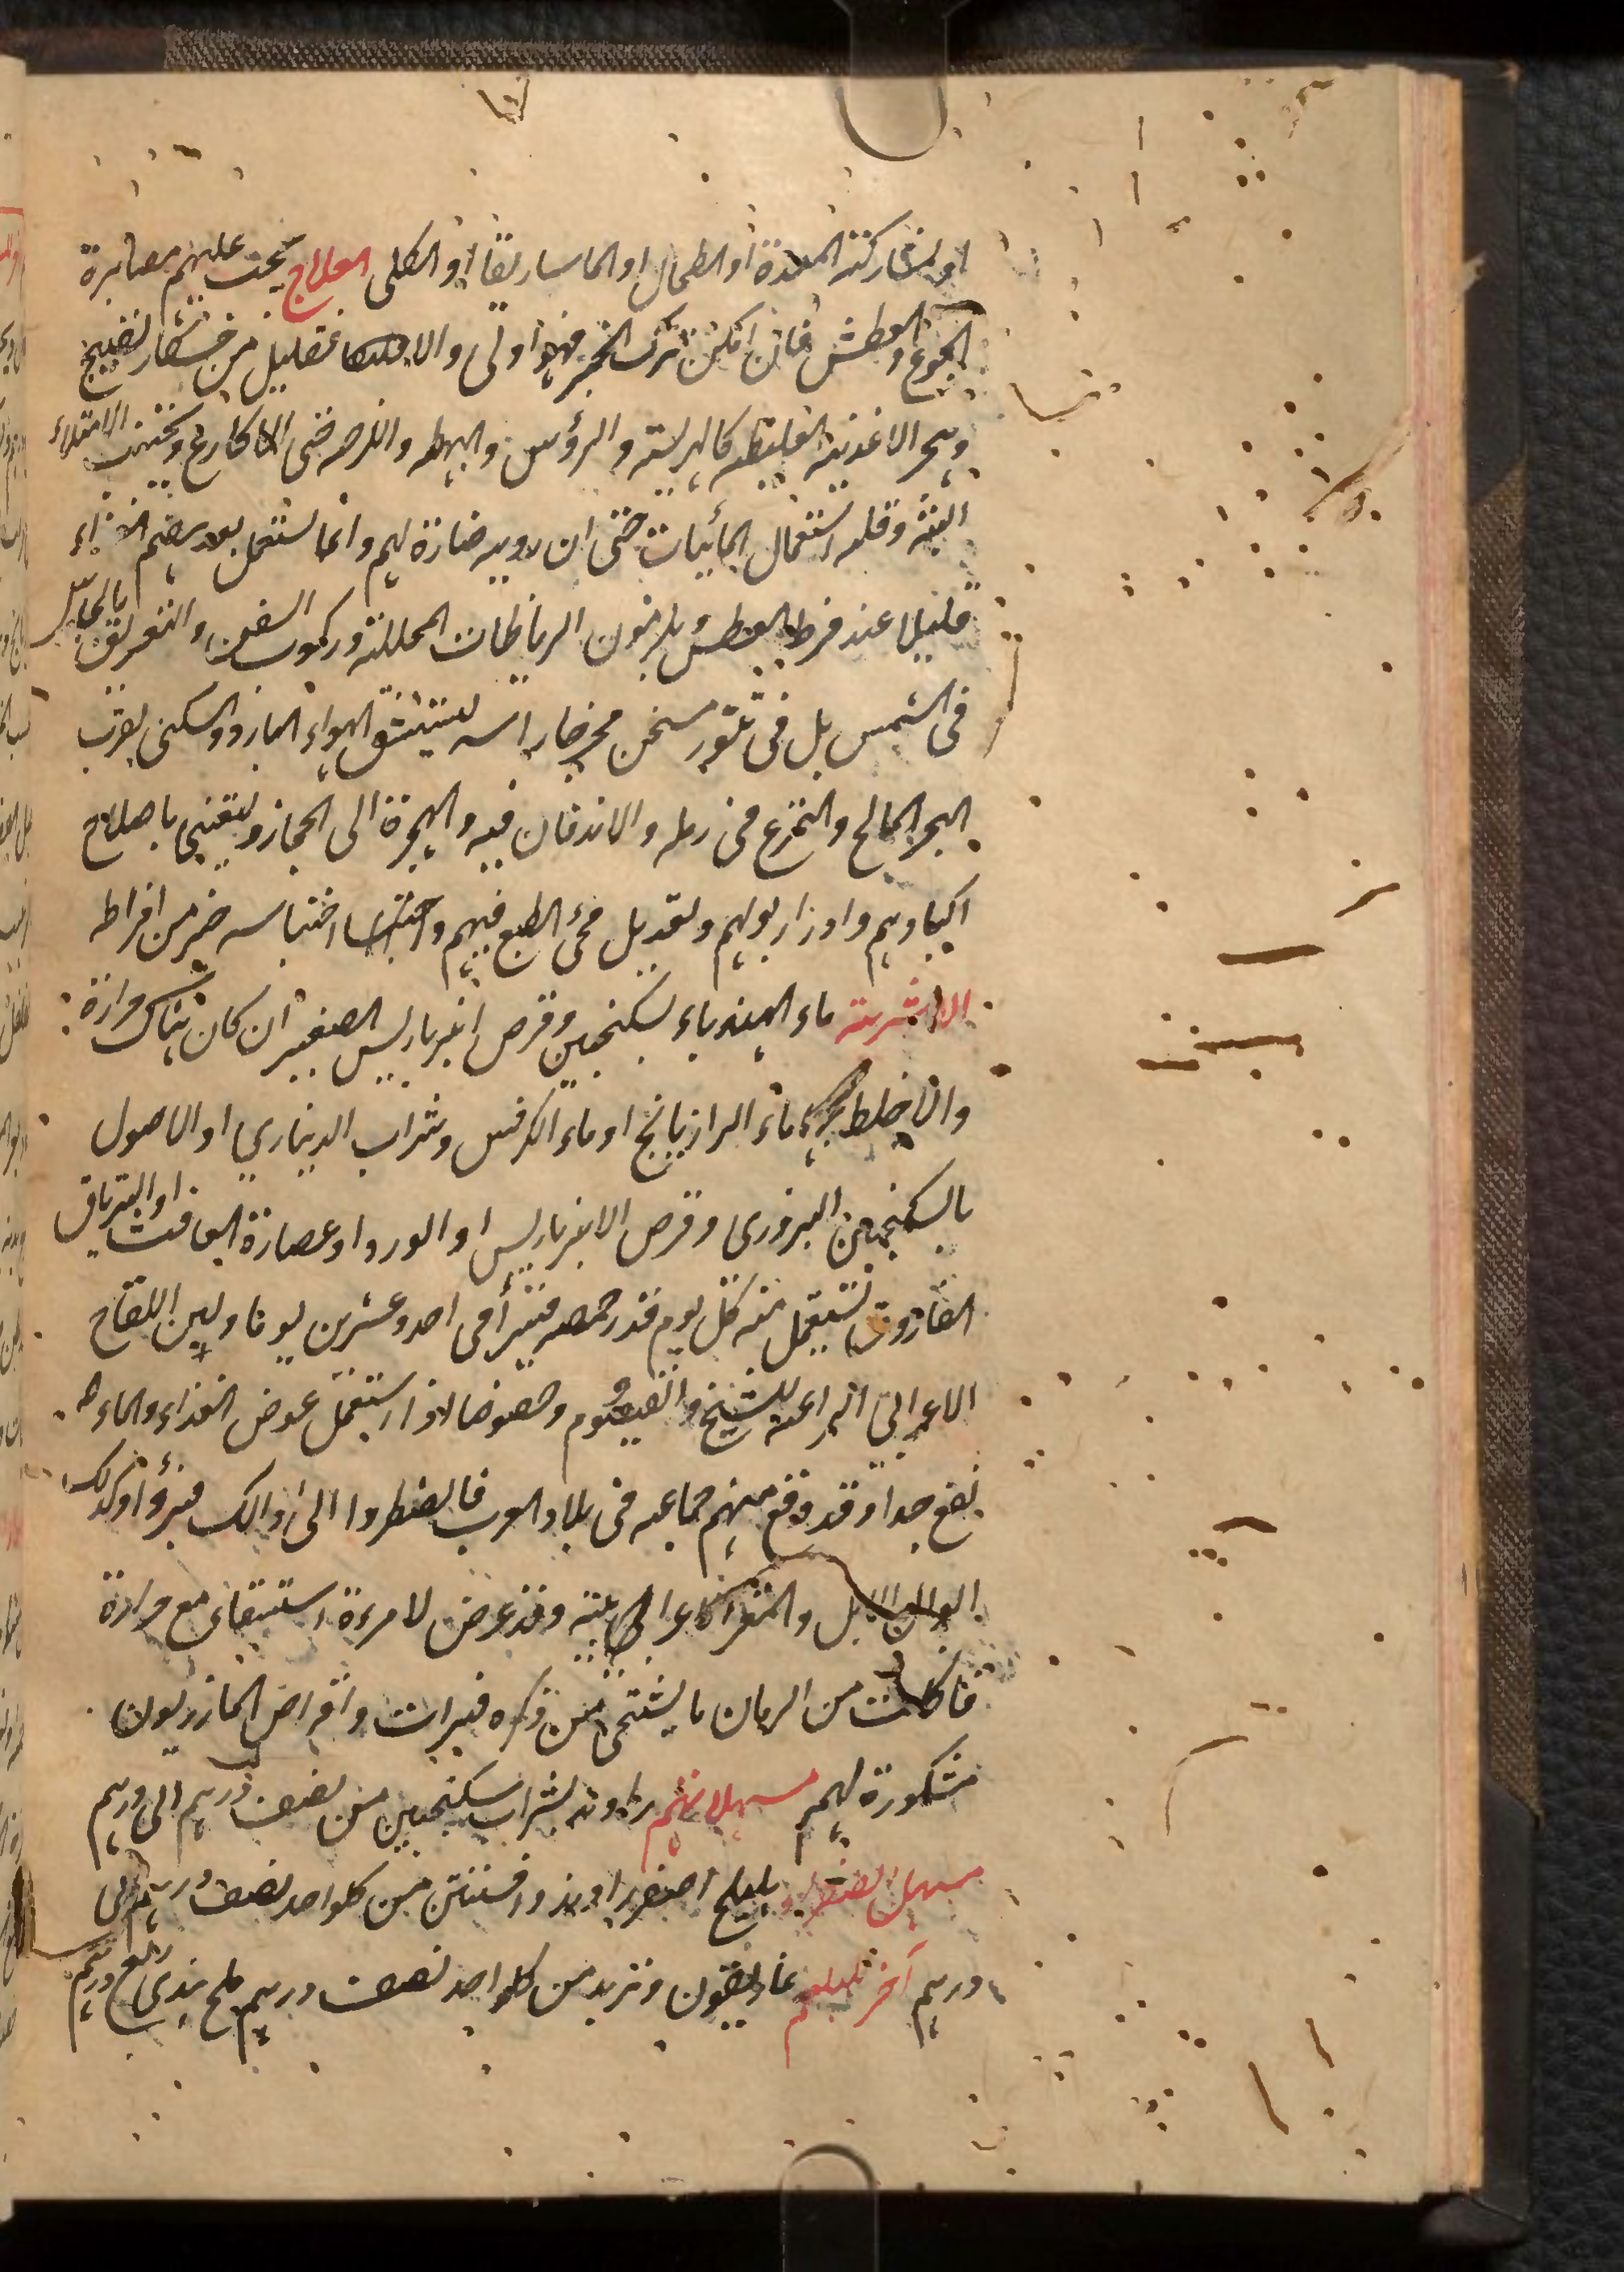 او لمشاركة المعدة او الطحال او الماساريقا او الكلى العلاج يجب عليهم مصابرة
الجوع والعطش فان امكن ترك الخبز فهو اولى والا فقليل من خشكار نضيج
وهجر الاغذية الغليظة كالهريسة والرؤس والبهطه حتى الاكارع وتجنب الامتلاء
البتة وقلة استعمال المائيات حتى ان رويه ضارة لهم وانما يستعمل بعد هضم الغذاء
قليلا عند فرط العطش ويلزمون الرياضات المحللة وركوب السفن والتعريق
في الشمس بل في تنور مسخن مخرجا راسه ليستنشق الهواء البارد والسكنى بقرب
البحر المالح والتمرغ في رمله والاندفان فيه والهجرة الى الحجاز وليعتني باصلاح
اكبادهم وادرار بولهم وتعديل مجئ الطبع فيهم واحتباسه خير من افراطه
الاشربة ماء الهندباء بسكنجبين وقرص انبرباريس الصغير ان كان هناك حرارة
والا خلط بماء الرازيانج او ماء الكرفس وشراب الديناري او الاصول
بالسكنجبين البزوري وقرص الانبرباريس او الورد او عصارة الغافت او الترياق
الفاروق يستعمل منه كل يوم قدر حمصه فيبرأ في احد وعشرين يوما ولبن اللقاح
الاعرابية الراعية للشيخ والقيصوم وخصوصا اذا استعمل عوض الغذاء والماء
نفع جدا وقد وقع منهم جماعة في بلاد العرب فاضطروا الى ذالك فبرؤا وكذلك
ابوال الابل والمعز الاعرابية وقد عرض لامرءة استسقاء مع حرارة
فاكلت من الرمان ما يستحى من ذكره فبرات واقراص المازريون
مشكورة لهم مسهلاتهم راوند بشراب سكنجبين من نصف درهم الى درهم
مسهل الصفراء هليلج اصفر راوند وافسنتين من كلواحد نصف درهم الى
درهم آخر للبلغم غاريقون وتربد من كلواحد نصف درهم ملح هندي ربع درهم